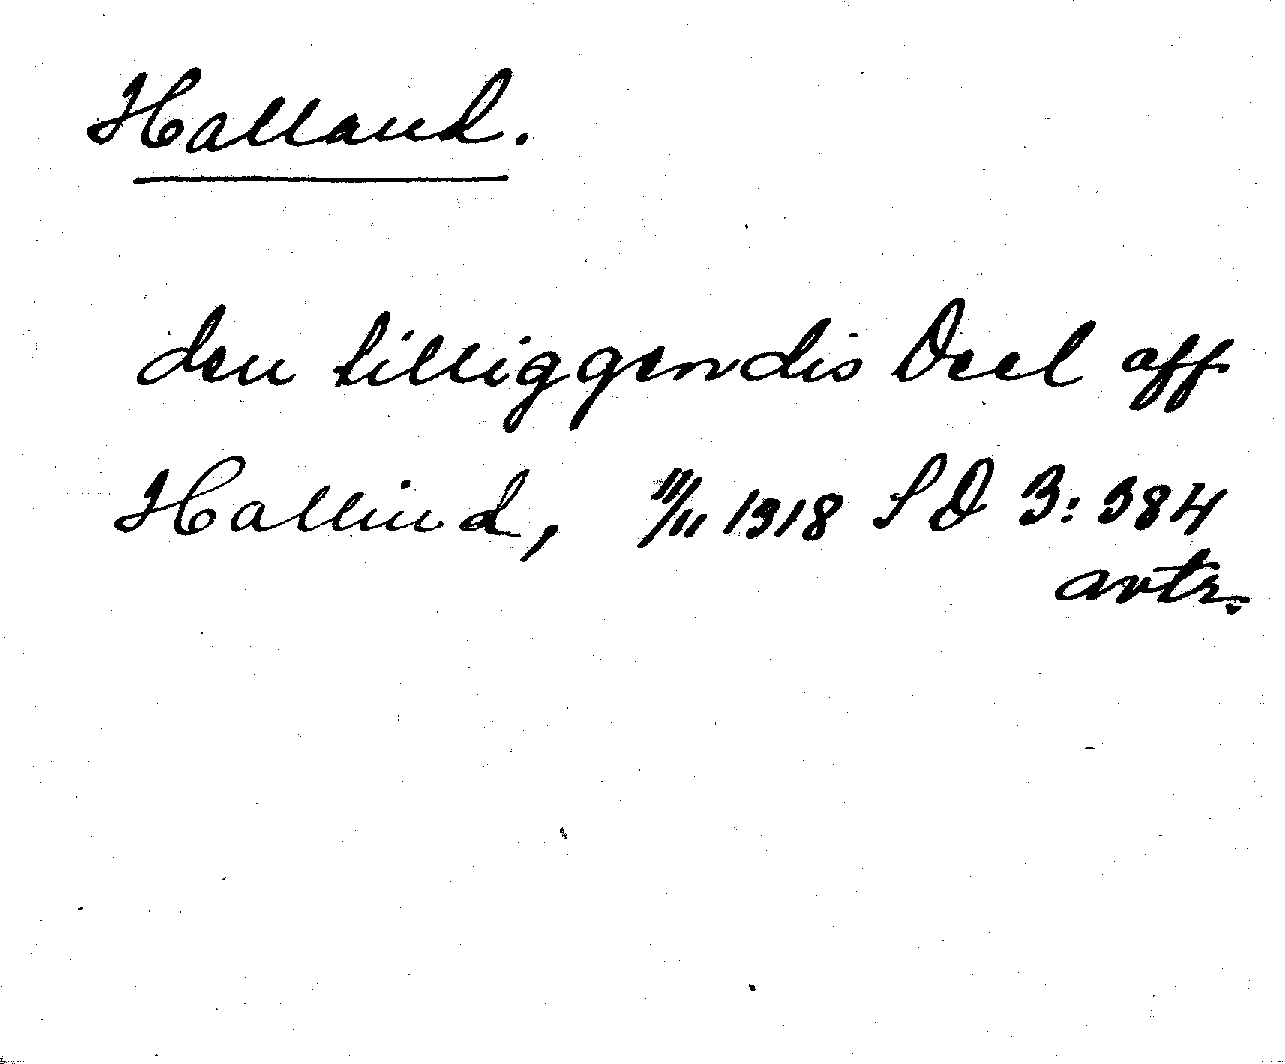 Halland.
den tilliggendis Deel aff
Hallind, 11/11 1318 SD 3: 384
avtr.